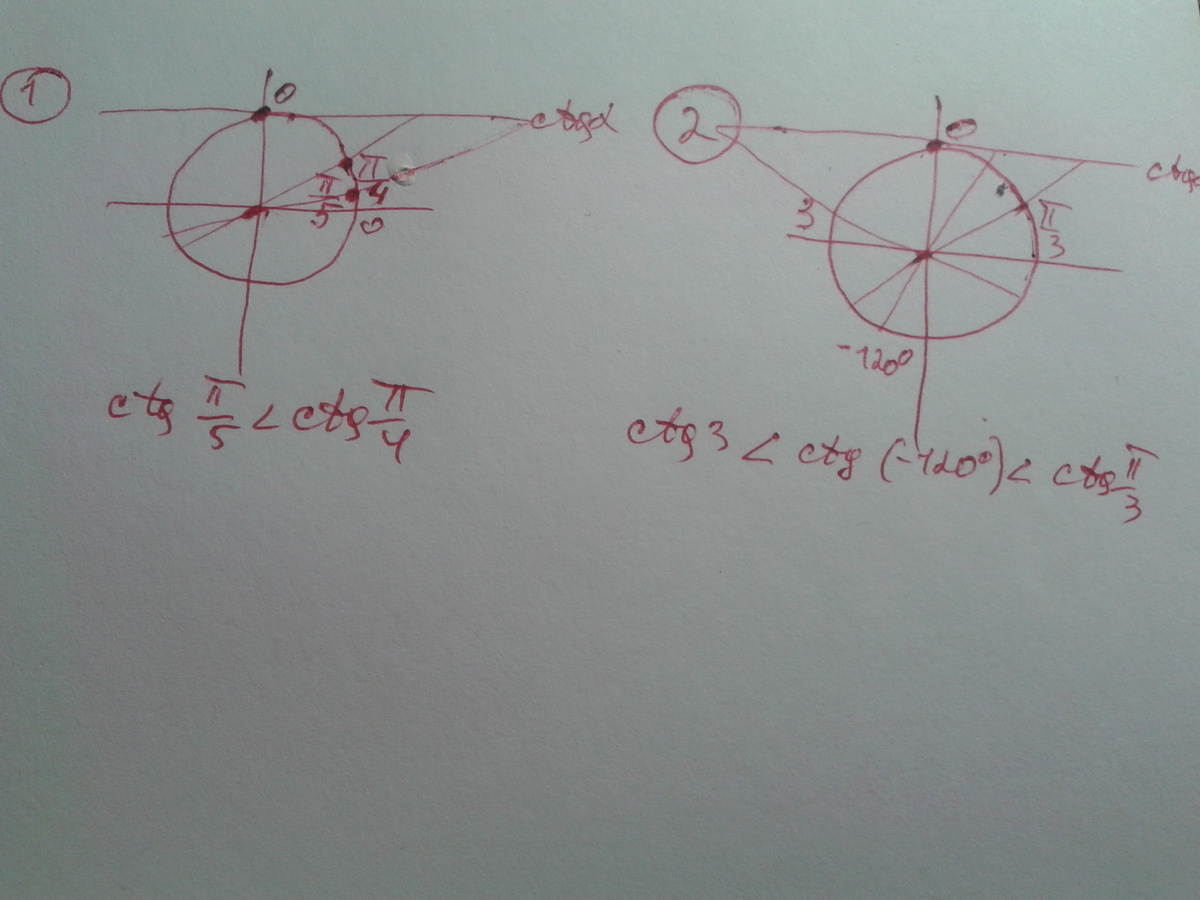 1
0
ctgα
π/4
π/5
0
ctg π/5 < ctg π/4
2
0
ctg
3
π/3
-120°
ctg 3 < ctg (-120°) < ctg π/3